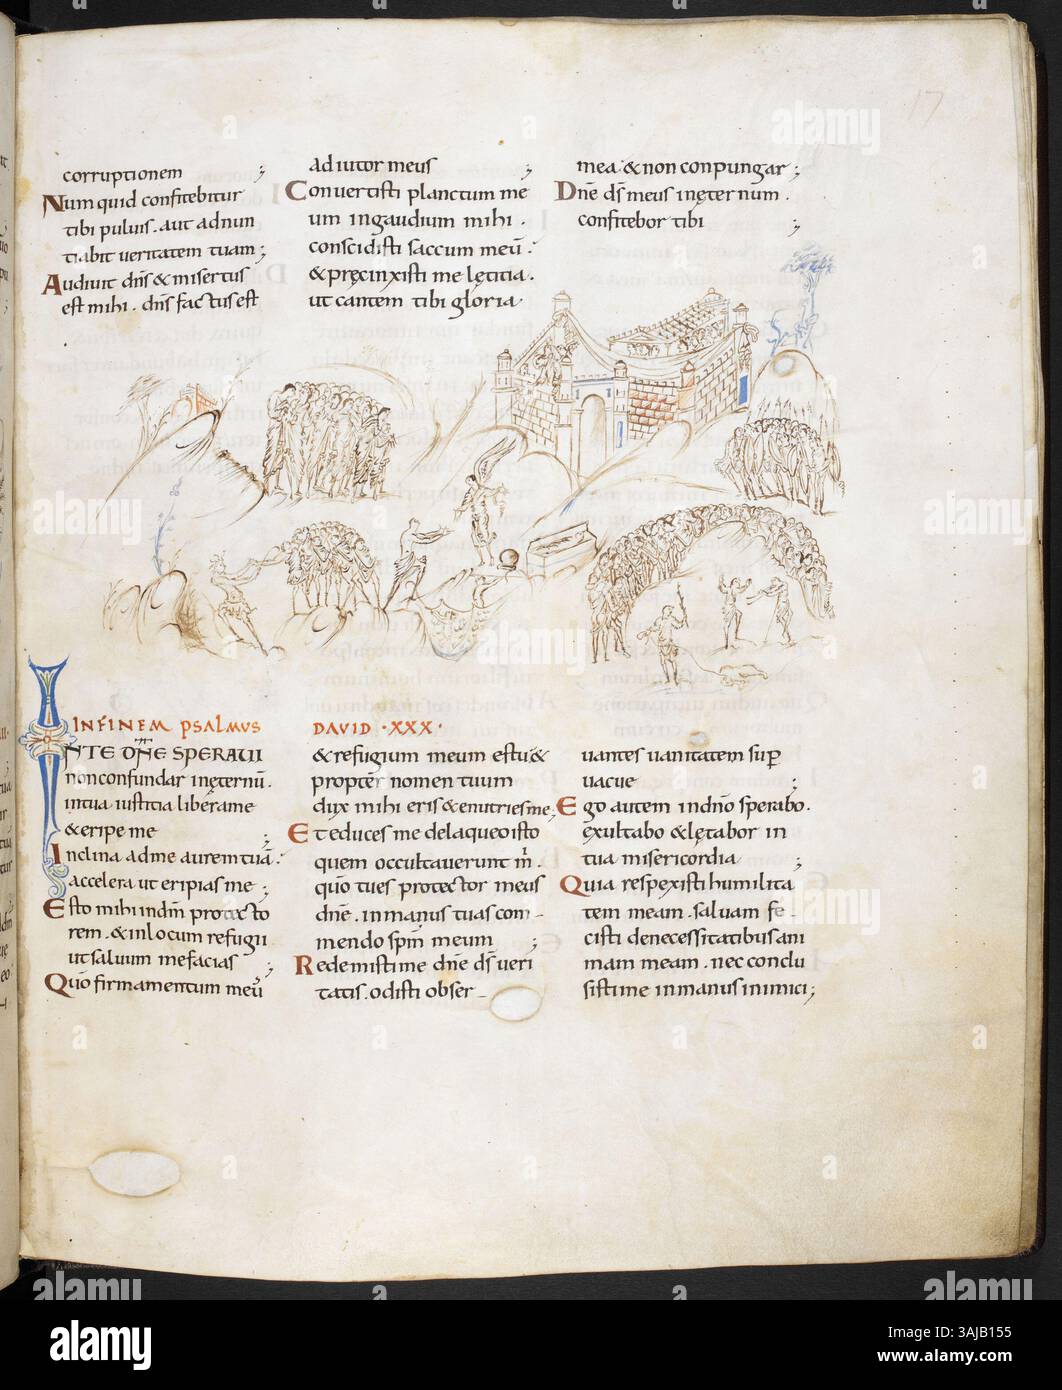 17
corruptionem ;
Numquid confitebitur
tibi puluis. aut adnun
tiabit ueritatem tuam;
Audiuit dñs & misertus
est mihi. dñs factus est
adiutor meus ;
Conuertisti planctum me
um ingaudium mihi.
conscidisti saccum meū.
& pręcinxisti me lętitia.
ut cantem tibi gloria
mea & non conpungar;
Dñe ds̄ meus inęternum
confitebor tibi ;
INFINEM PSALMUS DAVID ·XXX·
INTE DÑE SPERAUI
non confundar inęternū.
intua iustitia liberame
& eripe me ;
Inclina adme aurem tuā.
accelera ut eripias me ;
Esto mihi indm̄ protecto
rem. & inlocum refugii
ut saluum mefacias ;
Quō firmamentum meū
& refugium meum estu &
propter nomen tuum
dux mihi eris & enutries me;
Et educes me delaqueo isto
quem occultauerunt m̄.
quō tu es protector meus
dñe. inmanus tuas com-
mendo spm̄ meum ;
Redemisti me dñe ds̄ ueri
tatis. odisti obser-
uantes uanitatem sup
uacue ;
Ego autem indño sperabo.
exultabo & lętabor in
tua misericordia ;
Quia respexisti humilita
tem meam. saluam fe-
cisti denecessitatibus ani
mam meam. nec conclu
sisti me inmanus inimici;
alamy
Image ID: 3AJB155
www.alamy.com